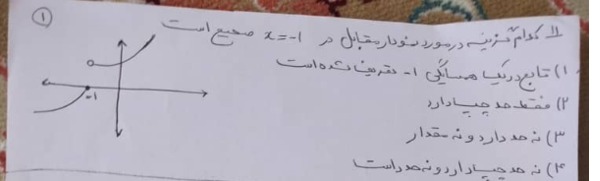 ①
۱۱ کدام گزینه در مورد نمودار مقابل در x=-1 صحیح است
۱) تابع در یک همسایگی -۱ تعریف نشده است
۲) فقط حد چپ دارد
۳) نه حد دارد و نه مقدار
۴) نه حد چپ دارد و نه حد راست
-1